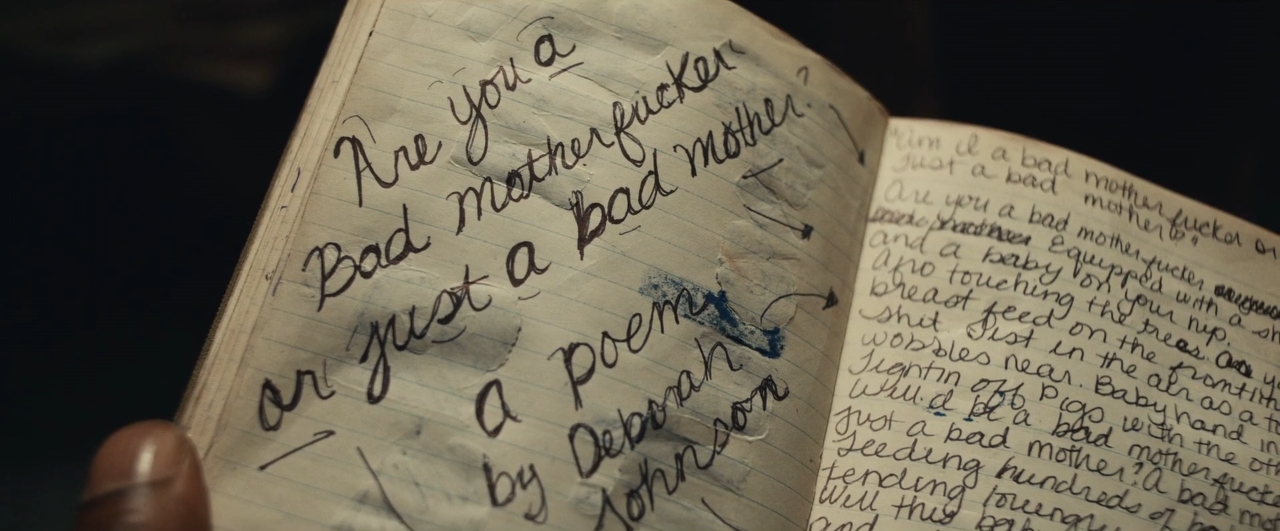 Are you a
Bad motherfucker
or just a bad mother?
a poem
by Deborah
Johnson
a bad motherfucker or
Just a bad mother?"
Are you a bad motherfucker
Equipped with a
and a baby on your hip.
Afro touching the trees.
breast feed on the frontline
shit fist in the air as a
wobbles near. Baby hand in
fightin off pigs with the
Will.d be a bad motherfuck
Just a bad mother? A bad
feeding hundreds of
tending
Will this
and